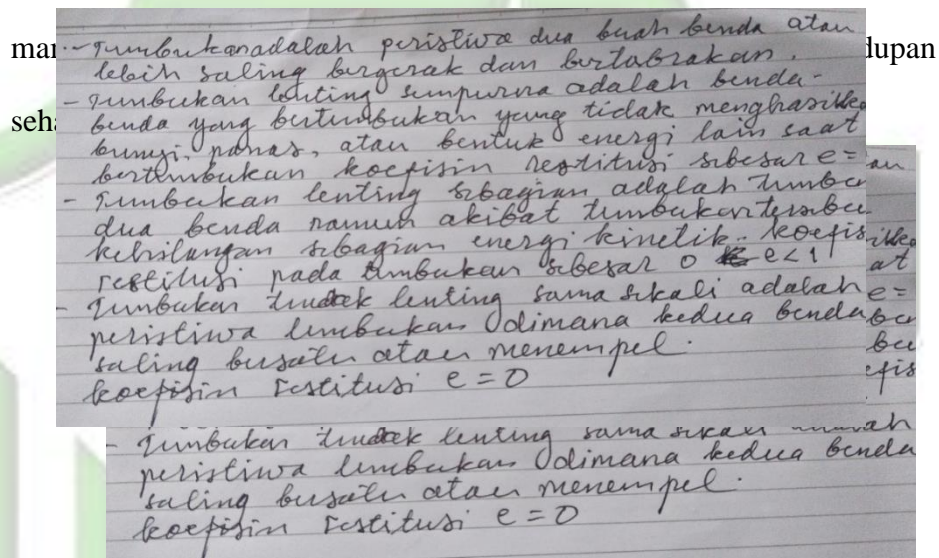 mar dupan
seha
- Tumbukan adalah peristiwa dua buah benda atau
lebih saling bergerak dan bertabrakan.
- Tumbukan lenting sempurna adalah benda-
benda yang bertumbukan yang tidak menghasilka
bunyi, panas, atau bentuk energi lain saat
bertumbukan koefisin restitusi sebesar e=
- Tumbukan lenting sebagian adalah tumbu
dua benda namun akibat tumbukan tersebu
kehilangan sebagian energi kinetik. koefis
restitusi pada tumbukan sebesar 0 e<1
- Tumbukan lenting sama sekali adalah
peristiwa tumbukan dimana kedua benda
saling bersatu atau menempel.
koefisin restitusi e=0
an
ilka
at
e=
bu
bu
efis
- Tumbukan lenting sama
peristiwa tumbukan dimana kedua benda
saling bersatu atau menempel.
koefisin restitusi e=0